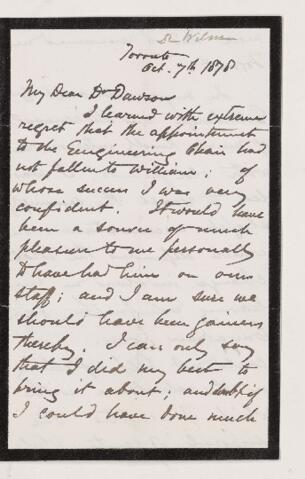 Dr Wilson
Toronto
Oct. 7th 1878
My Dear Dr Dawson
I learned with extreme
regret that the appointment
to the Engineering Chair had
not fallen to William; of
whose success I was very
confident. It would have
been a source of much
pleasure to me personally
to have had him on our
staff; and I am sure we
should have been gainers
thereby. I can only say
that I did my best to
bring it about; and if
I could have done much